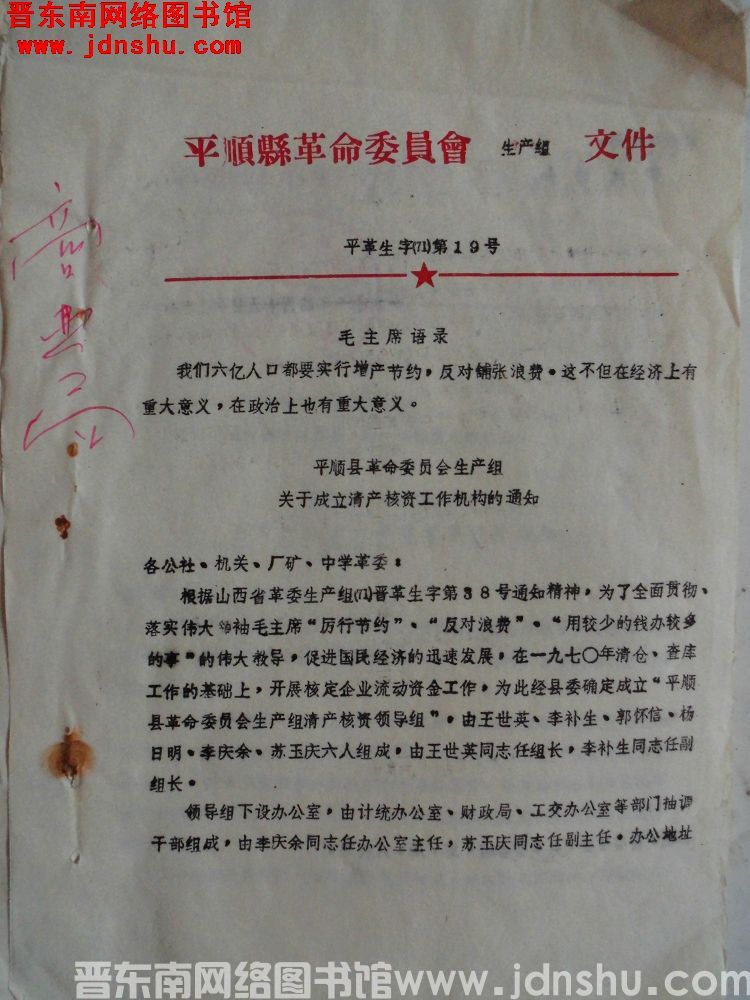 晋东南网络图书馆
www.jdnshu.com
平順縣革命委員會 生产组 文件
平革生字(71)第19号
毛主席语录
我们六亿人口都要实行增产节约，反对铺张浪费。这不但在经济上有
重大意义，在政治上也有重大意义。
平顺县革命委员会生产组
关于成立清产核资工作机构的通知
各公社、机关、厂矿、中学革委：
根据山西省革委生产组(71)晋革生字第38号通知精神，为了全面贯彻、
落实伟大领袖毛主席“厉行节约”、“反对浪费”。“用较少的钱办较多
的事”的伟大教导，促进国民经济的迅速发展，在一九七〇年清仓、查库
工作的基础上，开展核定企业流动资金工作，为此经县委确定成立“平顺
县革命委员会生产组清产核资领导组”。由王世英、李补生、郭怀信、杨
日明、李庆余、苏玉庆六人组成，由王世英同志任组长，李补生同志任副
组长。
领导组下设办公室，由计统办公室、财政局、工交办公室等部门抽调
干部组成，由李庆余同志任办公室主任，苏玉庆同志任副主任。办公地址
晋东南网络图书馆www.jdnshu.com